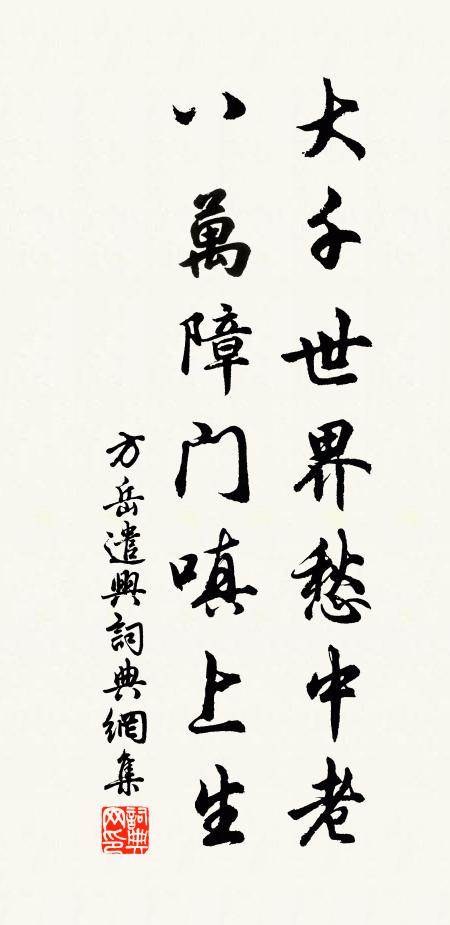 大千世界愁中老
八萬障门嗔上生
方岳遣興詞典網集
詞典网印